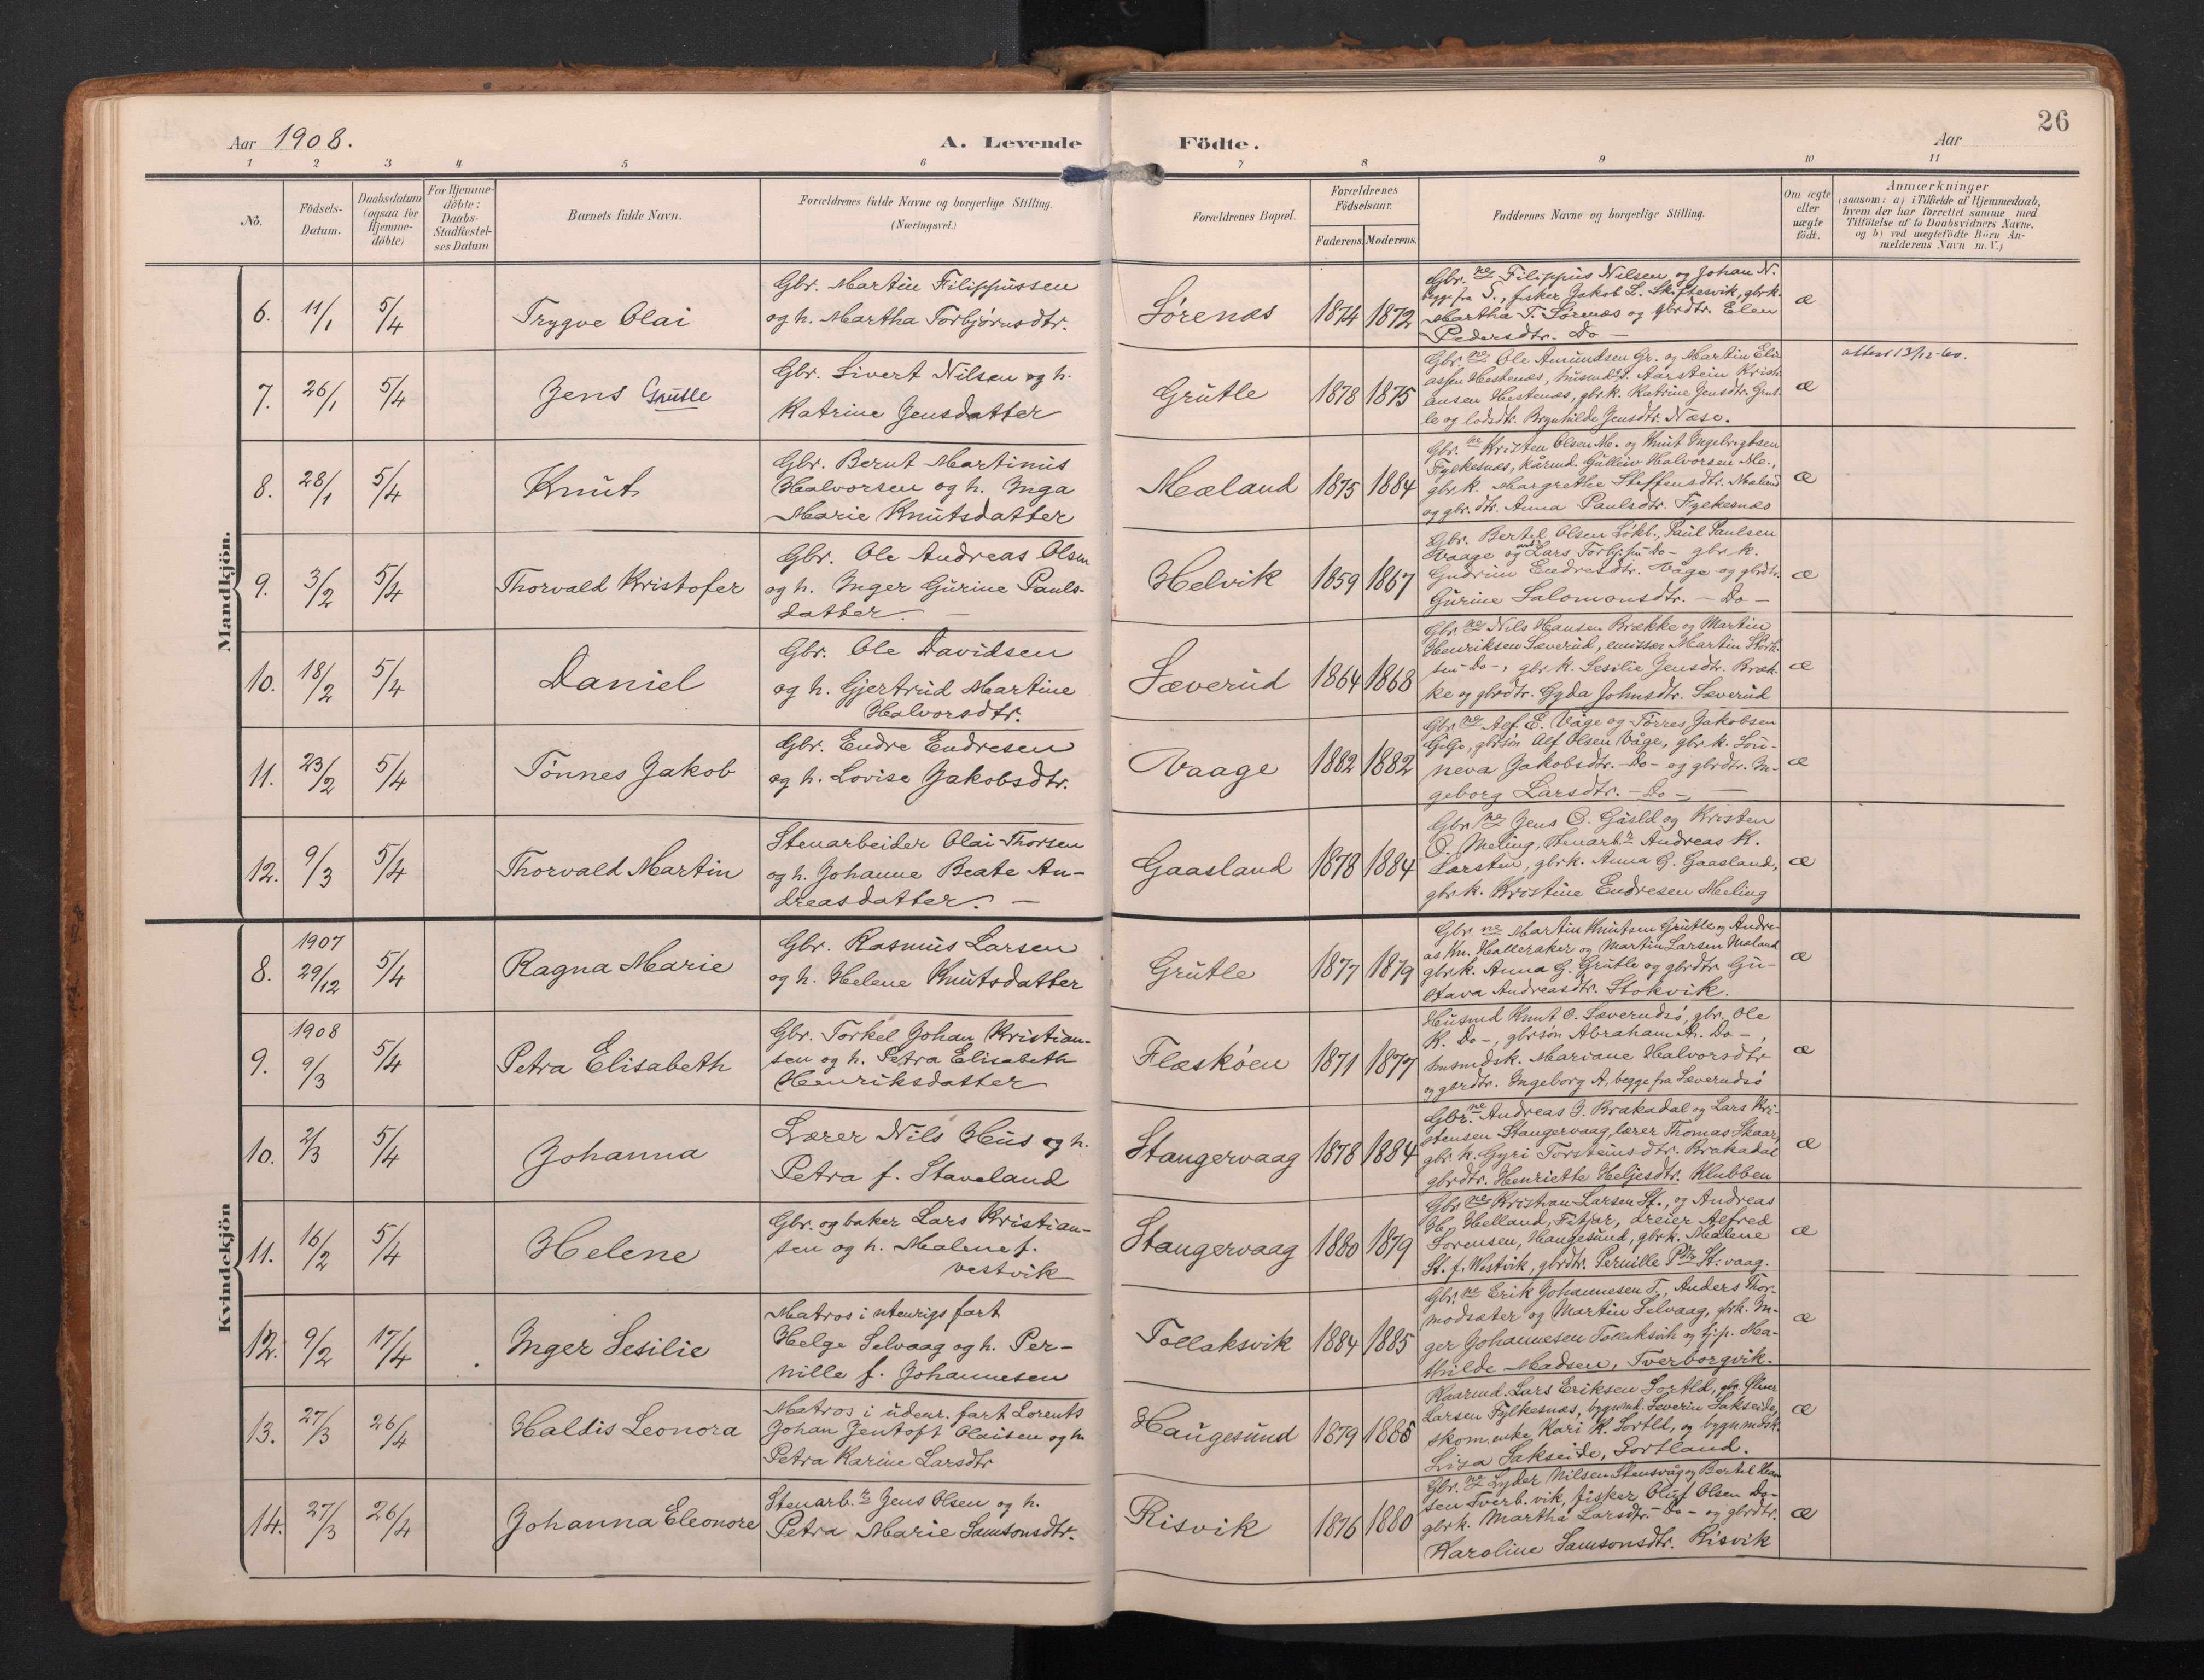 26
Aar 1908.
A. Levende
Födte.
Aar
1 2 3 4 5 6 7 8 9 10 11
No.
Födsels-
Datum.
Daabsdatum
(ogsaa for
Hjemme-
döbte)
For Hjemme-
döbte:
Daabs-
Stadfæstel-
ses Datum
Barnets fulde Navn.
Forældrenes fulde Navne og borgerlige Stilling.
(Næringsvei.)
Forældrenes Bopæl.
Forældrenes
Födselsaar.
Faderens. Moderens.
Faddernes Navne og borgerlige Stilling.
Om ægte
eller
uægte
født.
Anmærkninger
(saasom: a) i Tilfælde af Hjemmedaab,
hvem der har forrettet samme med
Tilföielse af to Daabsvidners Navne,
og b) ved uægtefödte Börn An-
melderens Navn m.V.)
Mandkjön.
6. 11/1 5/4 Trygve Olai
Gbr. Martin Filippussen
og h. Martha Torbjörnsdtr.
Sörenæs 1874 1872
Gbr.ne Filippus Nilsen og Johan N.
begge fra S., fisker Jakob L. Skiftesvik, gbrk.
Martha T. Sörenæs og gbrdtr. Elen
Pedersdtr. Do —
æ
7. 26/1 5/4 Jens Grutle
Gbr. Sivert Nilsen og h.
Katrine Jensdatter
Grutle 1878 1875
Gbr.ne Ole Amundsen Gr. og Martin Eli-
assen Hestenæs, husmds. Aarstein Kristi-
ansen Hestenæs, gbrk. Katrine Jensdtr. Grut-
le og lodsdtr. Brynhilde Jensdtr. Næse.
æ
attest 13/12-60.
8. 28/1 5/4 Knut
Gbr. Bernt Martinus
Halvorsen og h. Inga
Marie Knutsdatter
Mæland 1875 1884
Gbr.ne Kristen Olsen Me. og Knut Ingebrigtsen
Fylkesnæs, kårmd. Gulleiv Halvorsen Me.,
gbrk. Margrethe Steffensdtr. Mæland
og gbr.dtr. Anna Paulsdtr. Fylkesnæs
æ
9. 3/2 5/4 Thorvald Kristofer
Gbr. Ole Andreas Olsen
og h. Inger Gurine Pauls-
datter. —
Helvik 1859 1867
Gbr. Bertel Olsen Lökl., Paul Paulsen
Vaage og Lars Torbj.sen -Do- gbrk.
Gudrun Endresdtr. Våge og gbrdtr.
Gurine Salomonsdtr. — Do —
æ
10. 18/2 5/4 Daniel
Gbr. Ole Davidsen
og h. Gjertrud Martine
Halvorsdtr.
Sæverud 1864 1868
Gbr.ne Nils Hansen Brække og Martin
Henriksen Sæverud, emissær Martin
-Do-, gbrk. Sesilie Jensdtr. Bræk-
ke og gbrdtr. Gyda Johnsdtr. Sæverud
æ
11. 23/2 5/4 Tönnes Jakob
Gbr. Endre Endresen
og h. Lovise Jakobsdtr.
Vaage 1882 1882
Gbr.ne Alf E. Våge og Törres Jakobsen
gbrsön Alf Olsen Våge, gbrk. Sön-
neva Jakobsdtr. -Do- og gbrdtr. In-
geborg Larsdtr. — Do —
æ
12. 9/3 5/4 Thorvald Martin
Stenarbeider Olai Thorsen
og h. Johanne Beate An-
dreasdatter. —
Gaasland 1878 1884
Gbr.ne Jens O. Gåsld og Kristen
O. Meling, Stenarb.r Andreas K.
gbrk. Anna G. Gaasland,
gbrk. Kristine Endresen Meling
æ
Kvindekjön
8. 1907 29/12 5/4 Ragna Marie
Gbr. Rasmus Larsen
og h. Helene Knutsdatter
Grutle 1877 1879
Gbr.ne Martin Knutsen Grutle og Andre-
as Kn. Halleraker og Martin Larsen Mæland
gbrk. Anna G. Grutle og gbrdtr. Gu-
stava Andreasdtr. Stokvik.
æ
9. 1908 9/3 5/4 Petra Elisabeth
Gbr. Torkel Johan Kristian-
sen og h. Petra Elisabeth
Henriksdatter
Flæsköen 1871 1877
Husmd Knut O. Sæverudsö, gbr. Ole
K. Do-, gbrsön Abraham A. Do —,
husmdsk. Mariane Halvorsdtr
og gbrdtr. Ingeborg A, begge fra Sæverudsö
æ
10. 2/3 5/4 Johanna
Lærer Nils Hus og h.
Petra f. Staveland
Stangervaag 1878 1884
Gbr.ne Andreas J. Brakadal og Lars Kri-
stensen Stangervaag, lærer Thomas Skaar,
gbrk. Gyri Torsteinsdtr. Brakadal
gbrdtr. Henriette Heljesdtr. Klubben
æ
11. 16/2 5/4 Helene
Gbr. og baker Lars Kristian-
sen og h. Malene f.
Vestvik
Stangervaag 1880 1879
Gbr.ne Kristian Larsen St., og Andreas
H. Helland, Fitjar, dreier Alfred
Sorensen, Haugesund, gbrk. Malene
St. f. Westvik, gbrdtr. Pernille St.vaag.
æ
12. 9/2 17/4 Inger Sesilie
Matros i utenrigs fart
Helge Selvaag og h. Per-
nille f. Johannesen
Tollaksvik 1884 1885
Gbr.ne Erik Johannesen T., Anders Thor-
modsæter og Martin Selvaag, gbrk. In-
ger Johannesen Tollaksvik og tj.p. Ma-
thilde Madsen, Tverborgvik.
æ
13. 27/3 26/4 Haldis Leonora
Matros i udenr. fart Lorents
Johan Jentoft Olaisen og h
Petra Karine Larsdtr
Haugesund 1879 1886
Kaarmd. Lars Eriksen Sortld, gbr.
Larsen Fylkesnæs, bygnmd. Severin Sakseide,
skom.enke Kari K. Sortld, og bygn.mdsk.
Lisa Sakseide, Sortland.
æ
14. 27/3 26/4 Johanna Eleonore
Stenarb.r Jens Olsen og h.
Petra Marie Samsonsdtr.
Risvik 1876 1880
Gbr.ne Lyder Nilsen Stensvåg og Bertel Han-
sen Tverb.vik, fisker Oluf Olsen Do-
gbrk. Martha Larsdtr. -Do- og gbrdtr.
Karoline Samsonsdtr. Risvik
æ